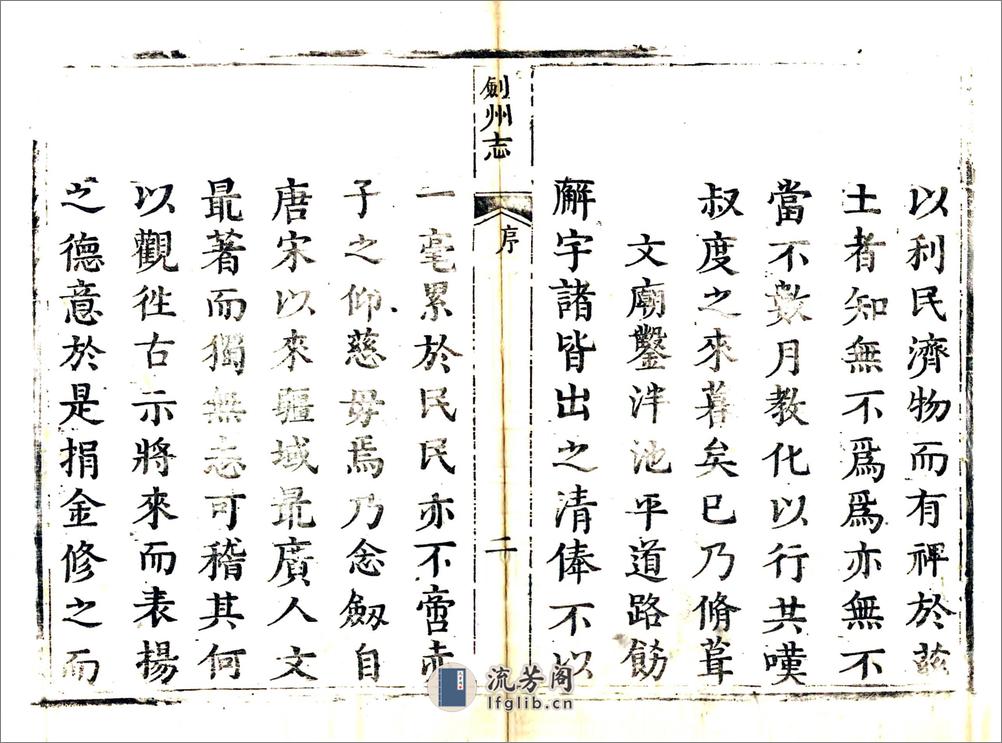 以利民濟物而有裨於茲
土者知無不爲爲亦無不
當不數月教化以行共嘆
叔度之來暮矣已乃脩葺
文廟鑿泮池平道路飭
廨宇諸皆出之清俸不以
劍州志
序
二
一毫累於民民亦不啻赤
子之仰慈母焉乃念劔自
唐宋以來疆域最廣人文
最著而獨無志可稽其何
以觀徃古示將來而表揚
之德意於是捐金修之而
流芳阁
lfglib.cn